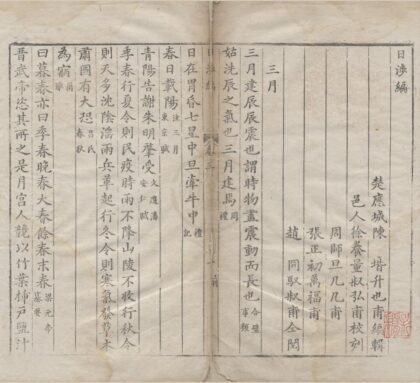 日涉編
楚應城陳堦升也甫編輯
邑人徐養量叔弘甫校刻
周師旦九九甫
張正初萬福甫
趙 同叔甫仝閱
三月
三月建辰辰震也謂時物盡震動而長也 合璧事類
姑洗辰之氣也三月建焉 周禮
日涉編 卷三
日在胃昏七星中旦牽牛中 禮記
春日載陽 注三月 東京賦
青陽告謝朱明肇受 潘安仁賦
季春行夏令則民疫時雨不降山陵不收行秋令
則天多沈陰滛雨兵革起行冬令則寒氣發草木
肅國有大恐 呂氏春秋
為寎 爾雅
曰暮春亦曰季春晚春大春餘春末春 梁元帝纂要
晉武帝恣其所之是月宮人競以竹葉插戶鹽汁